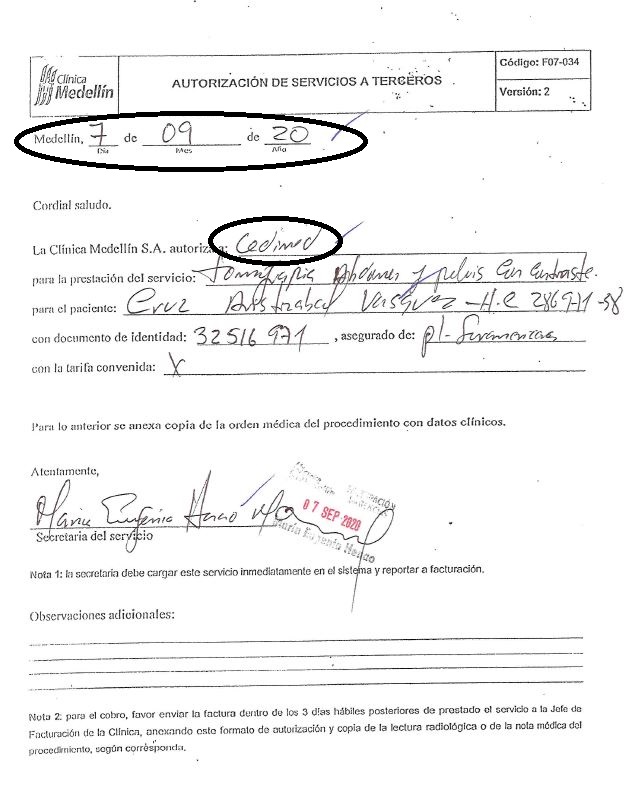 Clínica
Medellín
AUTORIZACIÓN DE SERVICIOS A TERCEROS
Código: F07-034
Versión: 2
Medellín, 7 de 09 de 20
Día Mes Año
Cordial saludo.
La Clínica Medellín S.A. autoriza: Cedimed
para la prestación del servicio: Tomografia Abdomen y pelvis Con Contraste.
para el paciente: Cruz Aristizabal Vasquez - H.C 286971-58
con documento de identidad: 32516971, asegurado de: pl- Suramericana
con la tarifa convenida: X
Para lo anterior se anexa copia de la orden médica del procedimiento con datos clínicos.
Atentamente,
Maria Eugenia Henao
Secretaria del servicio
07 SEP 2020
María Eugenia Henao
Nota 1: la secretaria debe cargar este servicio inmediatamente en el sistema y reportar a facturación.
Observaciones adicionales:
Nota 2: para el cobro, favor enviar la factura dentro de los 3 días hábiles posteriores de prestado el servicio a la Jefe de
Facturación de la Clínica, anexando este formato de autorización y copia de la lectura radiológica o de la nota médica del
procedimiento, según corresponda.